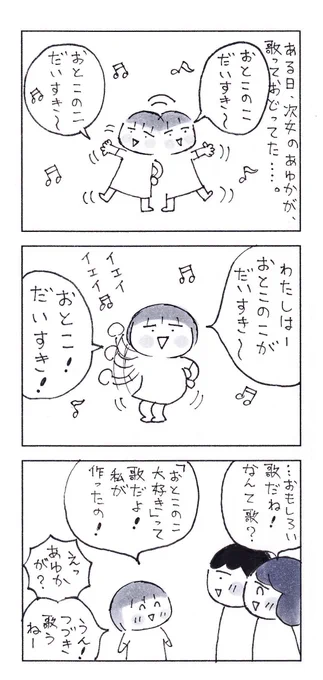 ある日、次女のあゆかが、
歌っておどってた……。
おとこのこ
だいすき〜
おとこのこ
だいすき〜
わたしはー
おとこのこが
だいすき〜
イェイ
イェイ
おとこ！
だいすき！
…おもしろい
歌だね！
なんて歌？
「おとこのこ
大好き」って
歌だよ！
私が
作ったの！
えっ
あゆか
が？
うん！
つづき
歌う
ねー